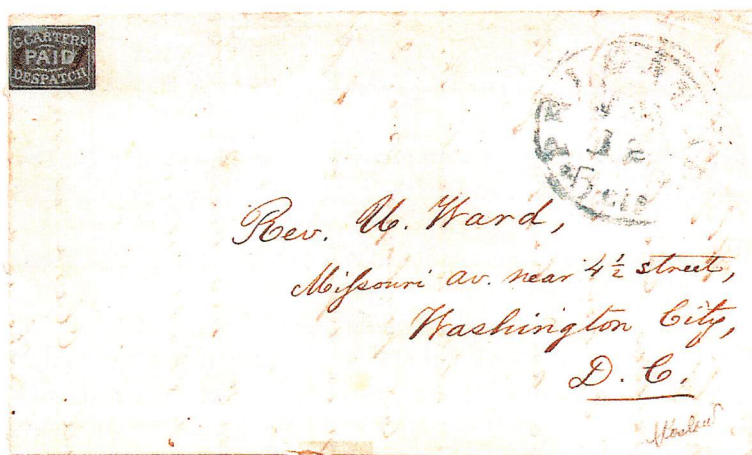 G.CARTER'S
PAID
DESPATCH
5 cts
Rev. U. Ward,
Missouri av. near 4½ street,
Washington City,
D. C.